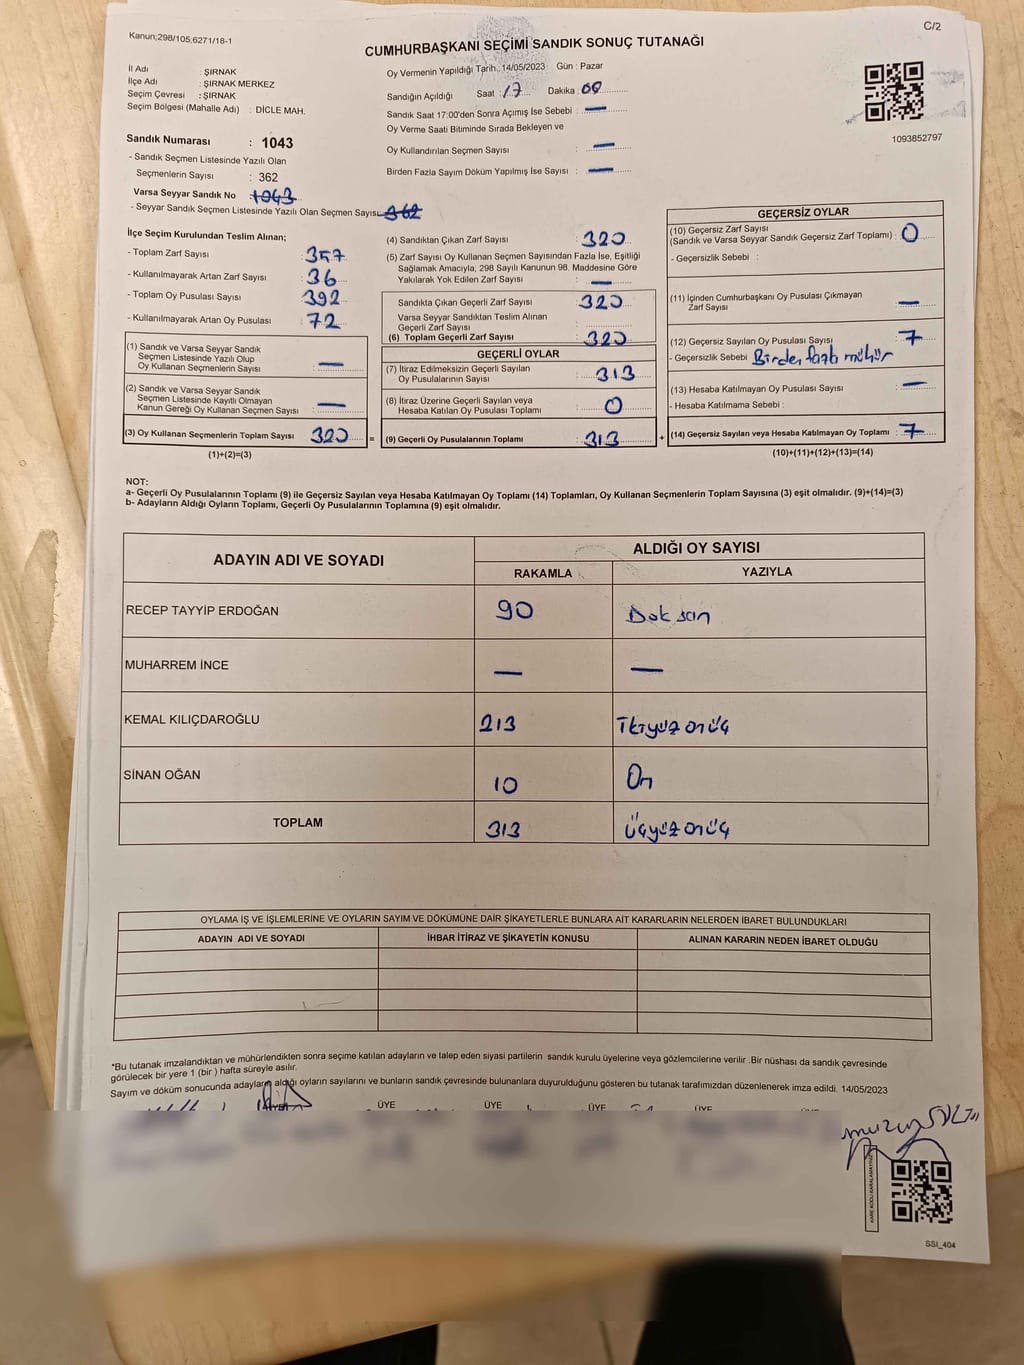 Kanun;298/105,6271/18-1
C/2
CUMHURBAŞKANI SEÇİMİ SANDIK SONUÇ TUTANAĞI
İl Adı : ŞIRNAK
İlçe Adı : ŞIRNAK MERKEZ
Seçim Çevresi : ŞIRNAK
Seçim Bölgesi (Mahalle Adı) : DİCLE MAH.
Oy Vermenin Yapıldığı Tarih : 14/05/2023 Gün : Pazar
Sandığın Açıldığı Saat : 17 Dakika : 00
Sandık Saat 17:00'den Sonra Açımış İse Sebebi : —
Oy Verme Saati Bitiminde Sırada Bekleyen ve
Oy Kullandırılan Seçmen Sayısı : —
Birden Fazla Sayım Döküm Yapılmış İse Sayısı : —
1093852797
Sandık Numarası : 1043
- Sandık Seçmen Listesinde Yazılı Olan
Seçmenlerin Sayısı : 362
Varsa Seyyar Sandık No : 1043
- Seyyar Sandık Seçmen Listesinde Yazılı Olan Seçmen Sayısı: 362
İlçe Seçim Kurulundan Teslim Alınan;
- Toplam Zarf Sayısı : 357
- Kullanılmayarak Artan Zarf Sayısı : 36
- Toplam Oy Pusulası Sayısı : 392
- Kullanılmayarak Artan Oy Pusulası : 72
(1) Sandık ve Varsa Seyyar Sandık
Seçmen Listesinde Yazılı Olup
Oy Kullanan Seçmenlerin Sayısı : —
(2) Sandık ve Varsa Seyyar Sandık
Seçmen Listesinde Kayıtlı Olmayan
Kanun Gereği Oy Kullanan Seçmen Sayısı : —
(3) Oy Kullanan Seçmenlerin Toplam Sayısı : 320
(1)+(2)=(3)
(4) Sandıktan Çıkan Zarf Sayısı : 320
(5) Zarf Sayısı Oy Kullanan Seçmen Sayısından Fazla İse, Eşitliği
Sağlamak Amacıyla, 298 Sayılı Kanunun 98. Maddesine Göre
Yakılarak Yok Edilen Zarf Sayısı : —
Sandıkta Çıkan Geçerli Zarf Sayısı : 320
Varsa Seyyar Sandıktan Teslim Alınan
Geçerli Zarf Sayısı :
(6) Toplam Geçerli Zarf Sayısı : 320
GEÇERLİ OYLAR
(7) İtiraz Edilmeksizin Geçerli Sayılan
Oy Pusulalarının Sayısı : 313
(8) İtiraz Üzerine Geçerli Sayılan veya
Hesaba Katılan Oy Pusulası Toplamı : 0
= (9) Geçerli Oy Pusulalarının Toplamı : 313
GEÇERSİZ OYLAR
(10) Geçersiz Zarf Sayısı
(Sandık ve Varsa Seyyar Sandık Geçersiz Zarf Toplamı) : 0
- Geçersizlik Sebebi :
(11) İçinden Cumhurbaşkanı Oy Pusulası Çıkmayan
Zarf Sayısı : —
(12) Geçersiz Sayılan Oy Pusulası Sayısı : 7
- Geçersizlik Sebebi Birden fazla mühür
(13) Hesaba Katılmayan Oy Pusulası Sayısı : —
- Hesaba Katılmama Sebebi :
+ (14) Geçersiz Sayılan veya Hesaba Katılmayan Oy Toplamı : 7
(10)+(11)+(12)+(13)=(14)
NOT:
a- Geçerli Oy Pusulalarının Toplamı (9) ile Geçersiz Sayılan veya Hesaba Katılmayan Oy Toplamı (14) Toplamları, Oy Kullanan Seçmenlerin Toplam Sayısına (3) eşit olmalıdır. (9)+(14)=(3)
b- Adayların Aldığı Oyların Toplamı, Geçerli Oy Pusulalarının Toplamına (9) eşit olmalıdır.
ADAYIN ADI VE SOYADI ALDIĞI OY SAYISI
RAKAMLA YAZIYLA
RECEP TAYYİP ERDOĞAN 90 Doksan
MUHARREM İNCE — —
KEMAL KILIÇDAROĞLU 213 İkiyüz onüç
SİNAN OĞAN 10 On
TOPLAM 313 Üçyüz onüç
OYLAMA İŞ VE İŞLEMLERİNE VE OYLARIN SAYIM VE DÖKÜMÜNE DAİR ŞİKAYETLERLE BUNLARA AİT KARARLARIN NELERDEN İBARET BULUNDUKLARI
ADAYIN ADI VE SOYADI İHBAR İTİRAZ VE ŞİKAYETİN KONUSU ALINAN KARARIN NEDEN İBARET OLDUĞU
*Bu tutanak imzalandıktan ve mühürlendikten sonra seçime katılan adayların ve talep eden siyasi partilerin sandık kurulu üyelerine veya gözlemcilerine verilir .Bir nüshası da sandık çevresinde
görülecek bir yere 1 (bir ) hafta süreyle asılır.
Sayım ve döküm sonucunda adayların aldığı oyların sayılarını ve bunların sandık çevresinde bulunanlara duyurulduğunu gösteren bu tutanak tarafımızdan düzenlenerek imza edildi. 14/05/2023
ÜYE ÜYE ÜYE ÜYE
SSI_404